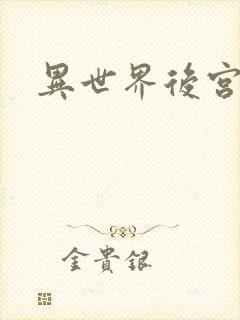 異世界後宮
金貴銀